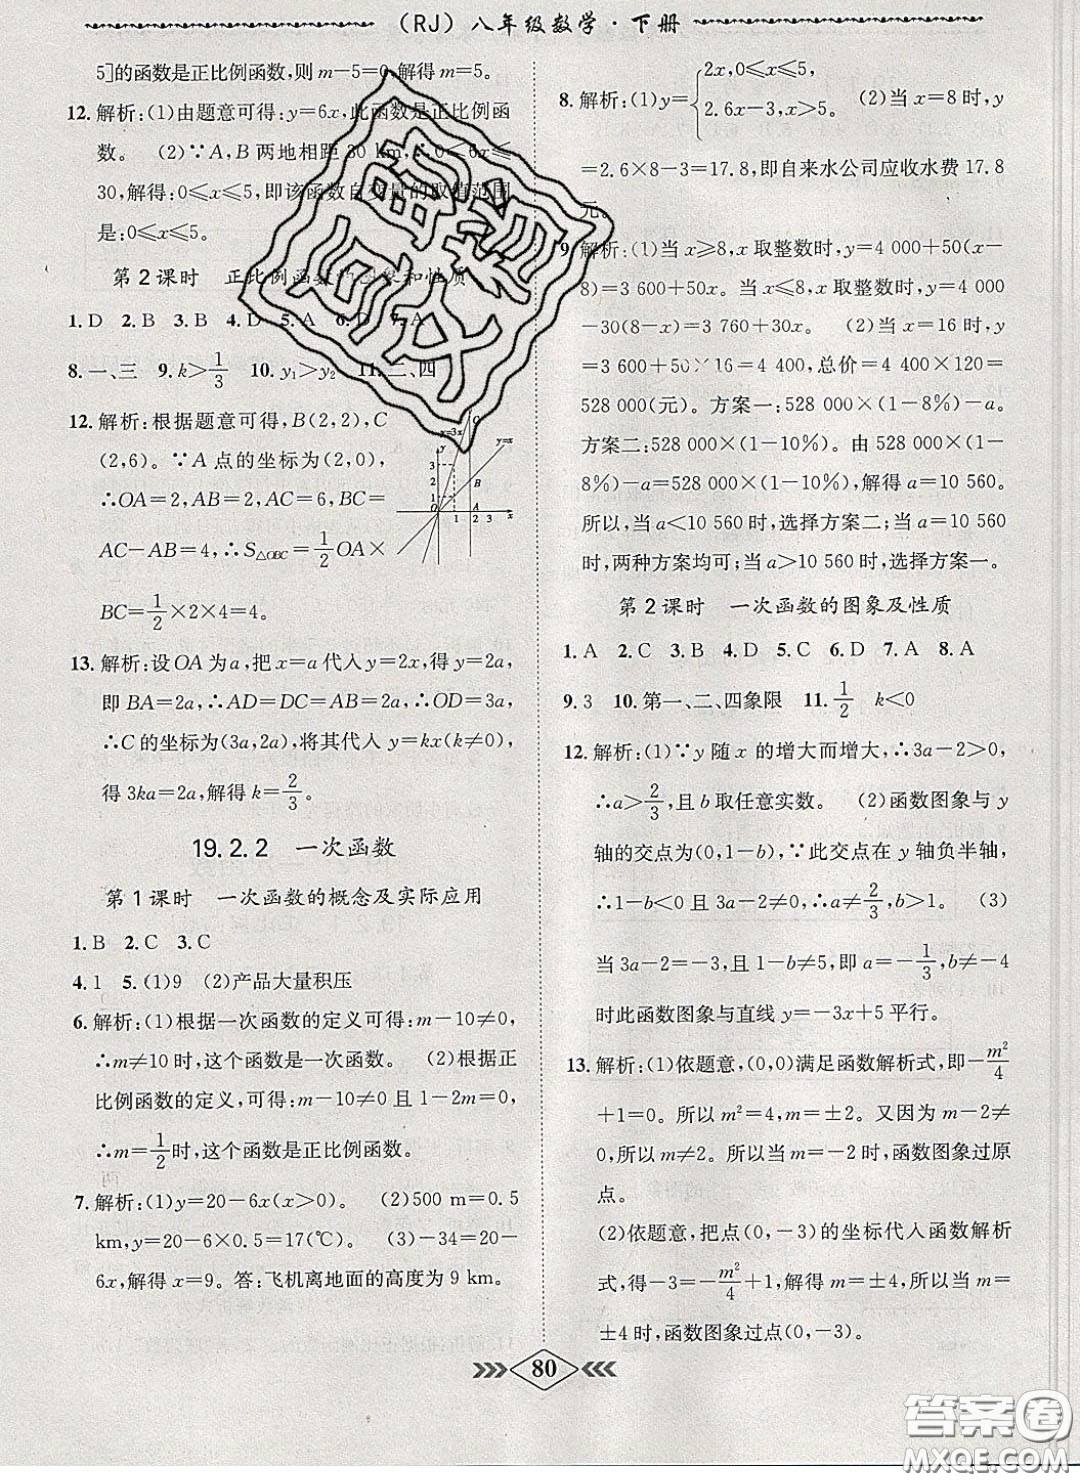 （RJ）八年级数学·下册
5]的函数是正比例函数,则m－5＝0,解得m＝5。
12. 解析:(1)由题意可得:y＝6x,此函数是正比例函
数。 (2)∵A,B两地相距30 km,∴0≤6x≤
30,解得:0≤x≤5,即该函数自变量的取值范围
是:0≤x≤5。
第2课时 正比例函数的图象和性质
1. D 2. B 3. B 4. D 5. A 6. D 7. A
8. 一、三 9. k＞1/3 10. y₁＞y₂ 11. 二、四
12. 解析:根据题意可得,B(2,2),C
(2,6)。∵A点的坐标为(2,0),
∴OA＝2,AB＝2,AC＝6,BC＝
AC－AB＝4,∴S△OBC＝1/2 OA×
BC＝1/2×2×4＝4。
y=3x
C
y
y=x
3
2
1
B
O
A
1 2 3 x
13. 解析:设OA为a,把x＝a代入y＝2x,得y＝2a,
即BA＝2a,∴AD＝DC＝AB＝2a,∴OD＝3a,
∴C的坐标为(3a,2a),将其代入y＝kx(k≠0),
得3ka＝2a,解得k＝2/3。
19.2.2 一次函数
第1课时 一次函数的概念及实际应用
1. B 2. C 3. C
4. 1 5. (1)9 (2)产品大量积压
6. 解析:(1)根据一次函数的定义可得:m－10≠0,
∴m≠10时,这个函数是一次函数。 (2)根据正
比例函数的定义,可得:m－10≠0且1－2m＝0,
∴m＝1/2时,这个函数是正比例函数。
7. 解析:(1)y＝20－6x(x＞0)。 (2)500 m＝0.5
km,y＝20－6×0.5＝17(℃)。 (3)－34＝20－
6x,解得x＝9。答:飞机离地面的高度为9 km。
8. 解析:(1)y＝{2x,0≤x≤5,
2.6x－3,x＞5。 (2)当x＝8时,y
＝2.6×8－3＝17.8,即自来水公司应收水费17.8
元。
9. 解析:(1)当x≥8,x取整数时,y＝4 000＋50(x－
8)＝3 600＋50x;当x≤8,x取整数时,y＝4 000
－30(8－x)＝3 760＋30x。 (2)当x＝16时,y
＝3 600＋50×16＝4 400,总价＝4 400×120＝
528 000(元)。方案一:528 000×(1－8%)－a。
方案二:528 000×(1－10%)。由528 000×(1－
8%)－a＝528 000×(1－10%),解得a＝10 560。
所以,当a＜10 560时,选择方案二;当a＝10 560
时,两种方案均可;当a＞10 560时,选择方案一。
第2课时 一次函数的图象及性质
1. A 2. C 3. B 4. D 5. C 6. D 7. A 8. A
9. 3 10. 第一、二、四象限 11. 1/2 k＜0
12. 解析:(1)∵y随x的增大而增大,∴3a－2＞0,
∴a＞2/3,且b取任意实数。 (2)函数图象与y
轴的交点为(0,1－b)。∵此交点在y轴负半轴,
∴1－b＜0且3a－2≠0,∴a≠2/3,b＞1。 (3)
当3a－2＝－3,1－b≠5,即a＝－1/3,b≠－4
时此函数图象与直线y＝－3x＋5平行。
13. 解析:(1)依题意,(0,0)满足函数解析式,即－m²/4
＋1＝0。所以m²＝4,m＝±2。又因为m－2≠
0,所以m≠2。所以当m＝－2时,函数图象过原
点。
(2)依题意,把点(0,－3)的坐标代入函数解析
式,得－3＝－m²/4＋1,解得m＝±4,所以当m＝
±4时,函数图象过点(0,－3)。
80
答案圈
MXQE.COM